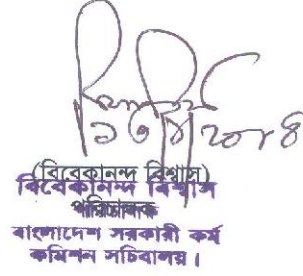 (বিবেকানন্দ বিশ্বাস)
বিবেকানন্দ বিশ্বাস
পরিচালক
বাংলাদেশ সরকারী কর্ম
কমিশন সচিবালয়।